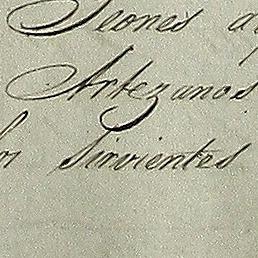 Peones a
Artezanos
los Sirvientes